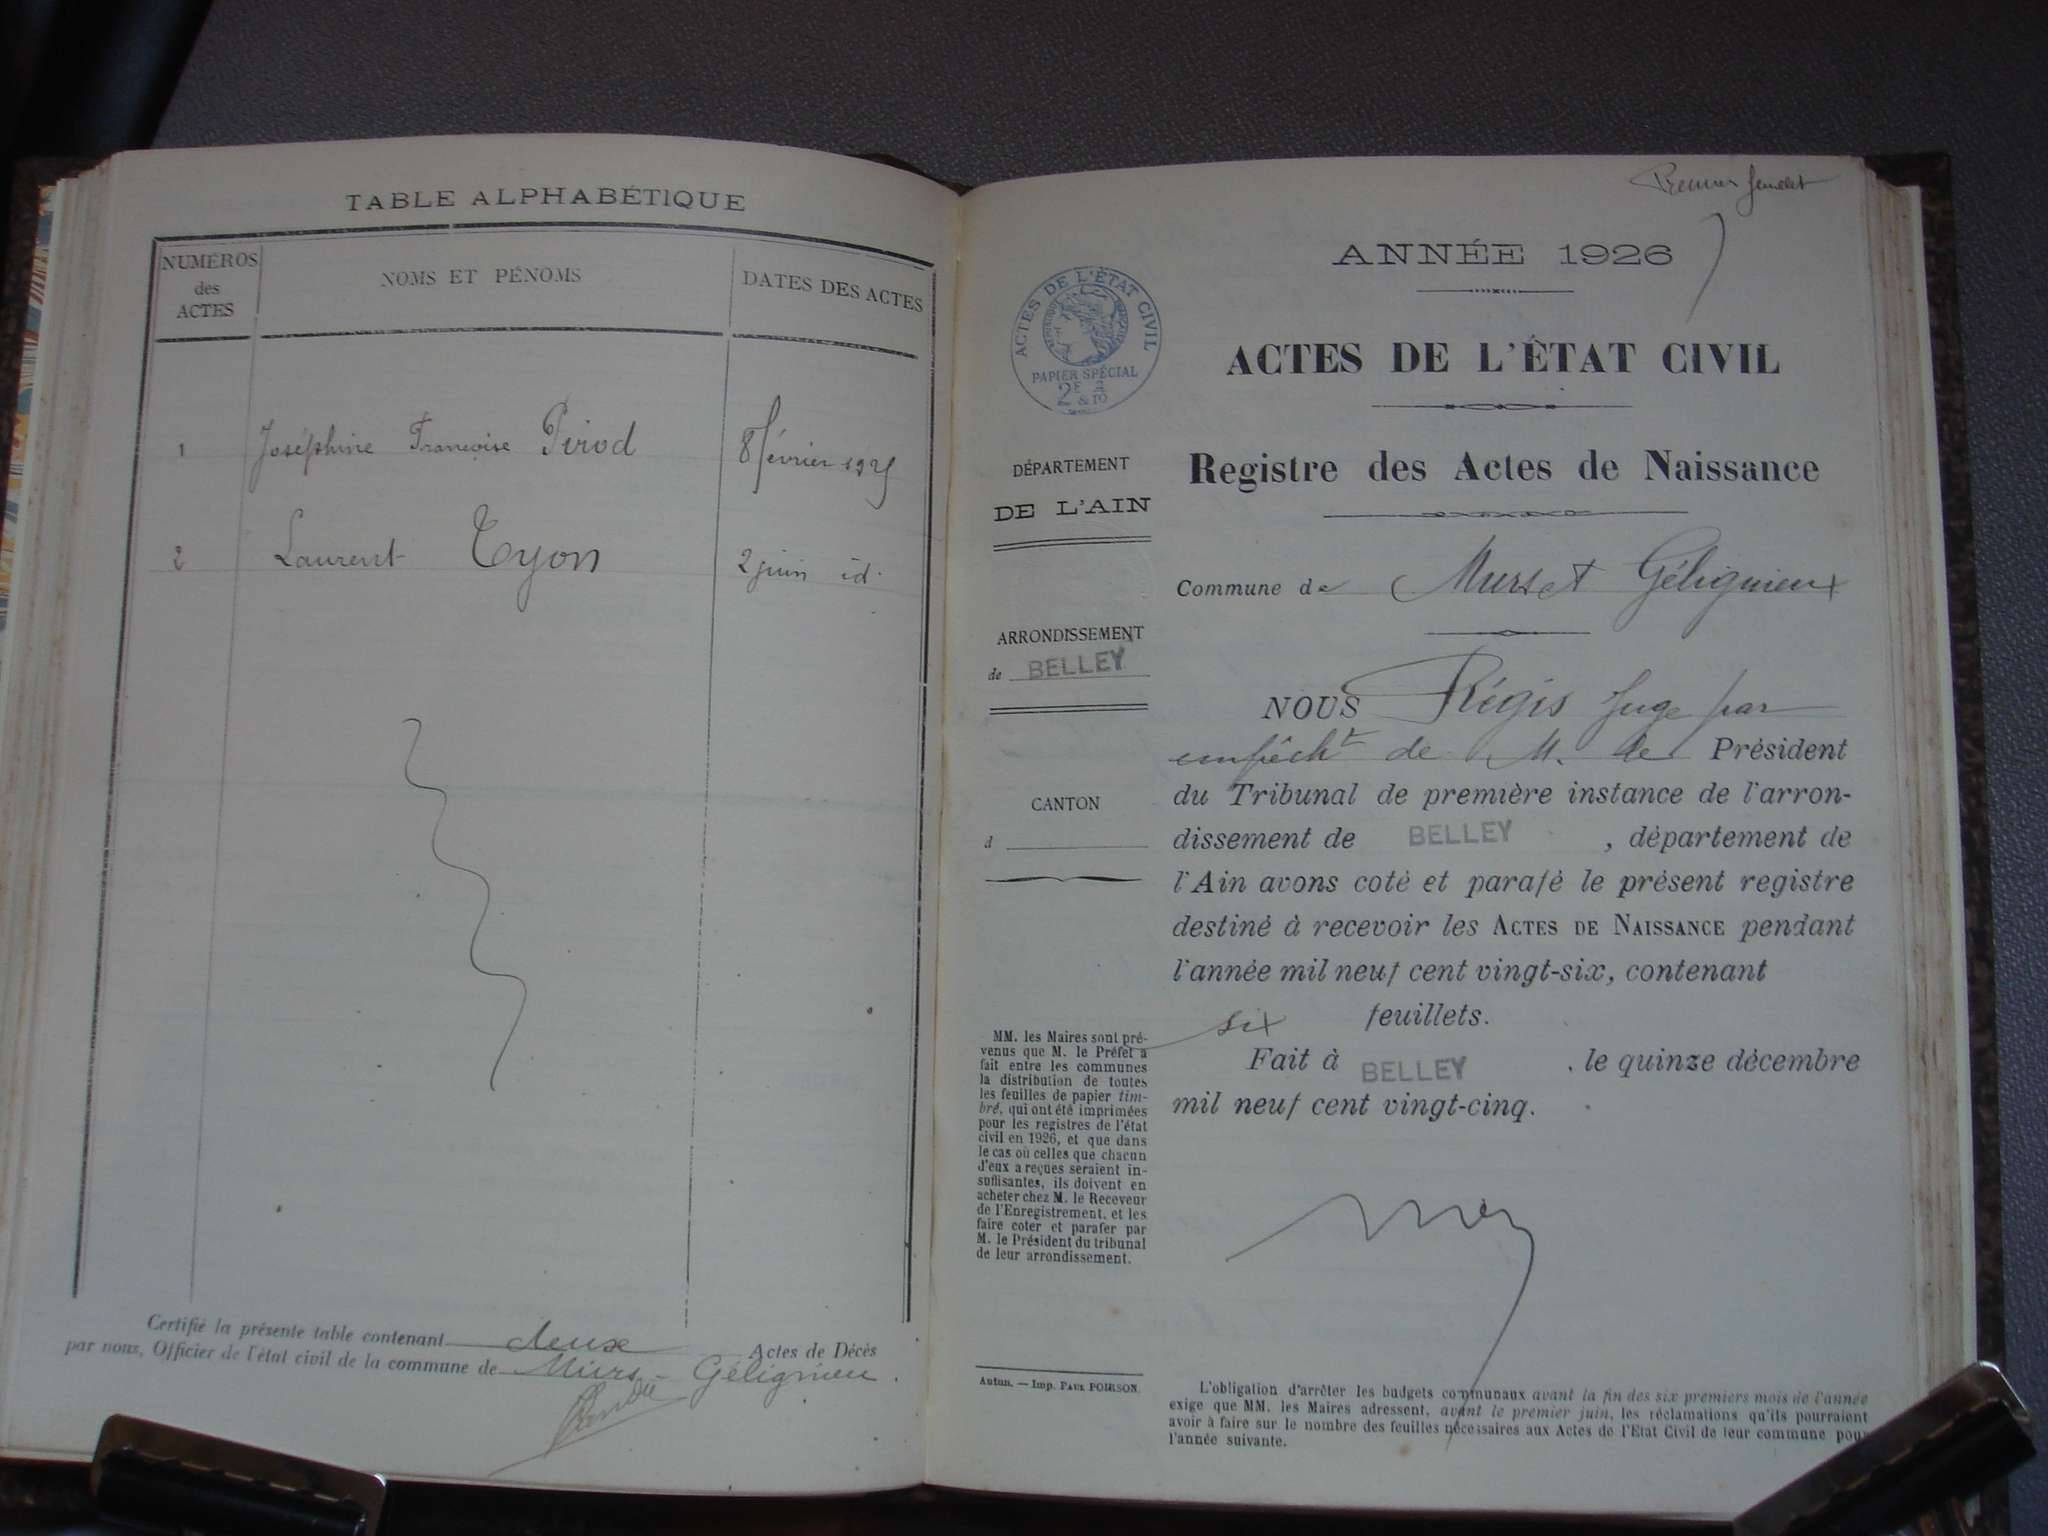 TABLE ALPHABÉTIQUE
NUMÉROS
des
ACTES
NOMS ET PÉNOMS
DATES DES ACTES
1 Joséphine Françoise Pirod 8 février 1925
2 Laurent Tyon 2 juin id.
Certifié la présente table contenant deux Actes de Décès
par nous, Officier de l'état civil de la commune de Murs-Gélignieu.
Premier feuillet
ANNÉE 1926
ACTES DE L'ÉTAT CIVIL
PAPIER SPÉCIAL
2F & 2/10
ACTES DE L'ÉTAT CIVIL
Registre des Actes de Naissance
DÉPARTEMENT
DE L'AIN
Commune de Murs et Gélignieux
ARRONDISSEMENT
de BELLEY
CANTON
d
NOUS Régis juge par
empêcht de M. le Président
du Tribunal de première instance de l'arron-
dissement de BELLEY, département de
l'Ain avons coté et parafé le présent registre
destiné à recevoir les ACTES DE NAISSANCE pendant
l'année mil neuf cent vingt-six, contenant
six feuillets.
Fait à BELLEY, le quinze décembre
mil neuf cent vingt-cinq.
MM. les Maires sont pré-
venus que M. le Préfet a
fait entre les communes
la distribution de toutes
les feuilles de papier tim-
bré, qui ont été imprimées
pour les registres de l'état
civil en 1926, et que dans
le cas où celles que chacun
d'eux a reçues seraient in-
suffisantes, ils doivent en
acheter chez M. le Receveur
de l'Enregistrement, et les
faire coter et parafer par
M. le Président du tribunal
de leur arrondissement.
Autun. — Imp. PAUL POIRSON.
L'obligation d'arrêter les budgets communaux avant la fin des six premiers mois de l'année
exige que MM. les Maires adressent, avant le premier juin, les réclamations qu'ils pourraient
avoir à faire sur le nombre des feuilles nécessaires aux Actes de l'État Civil de leur commune pour
l'année suivante.